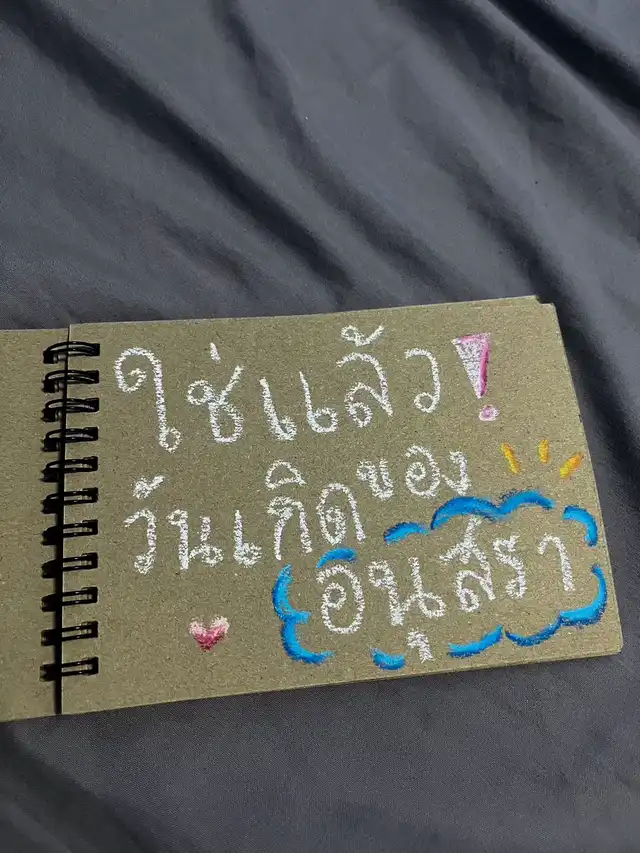 ใช่แล้ว!
วันเกิดของ
อนุสรา